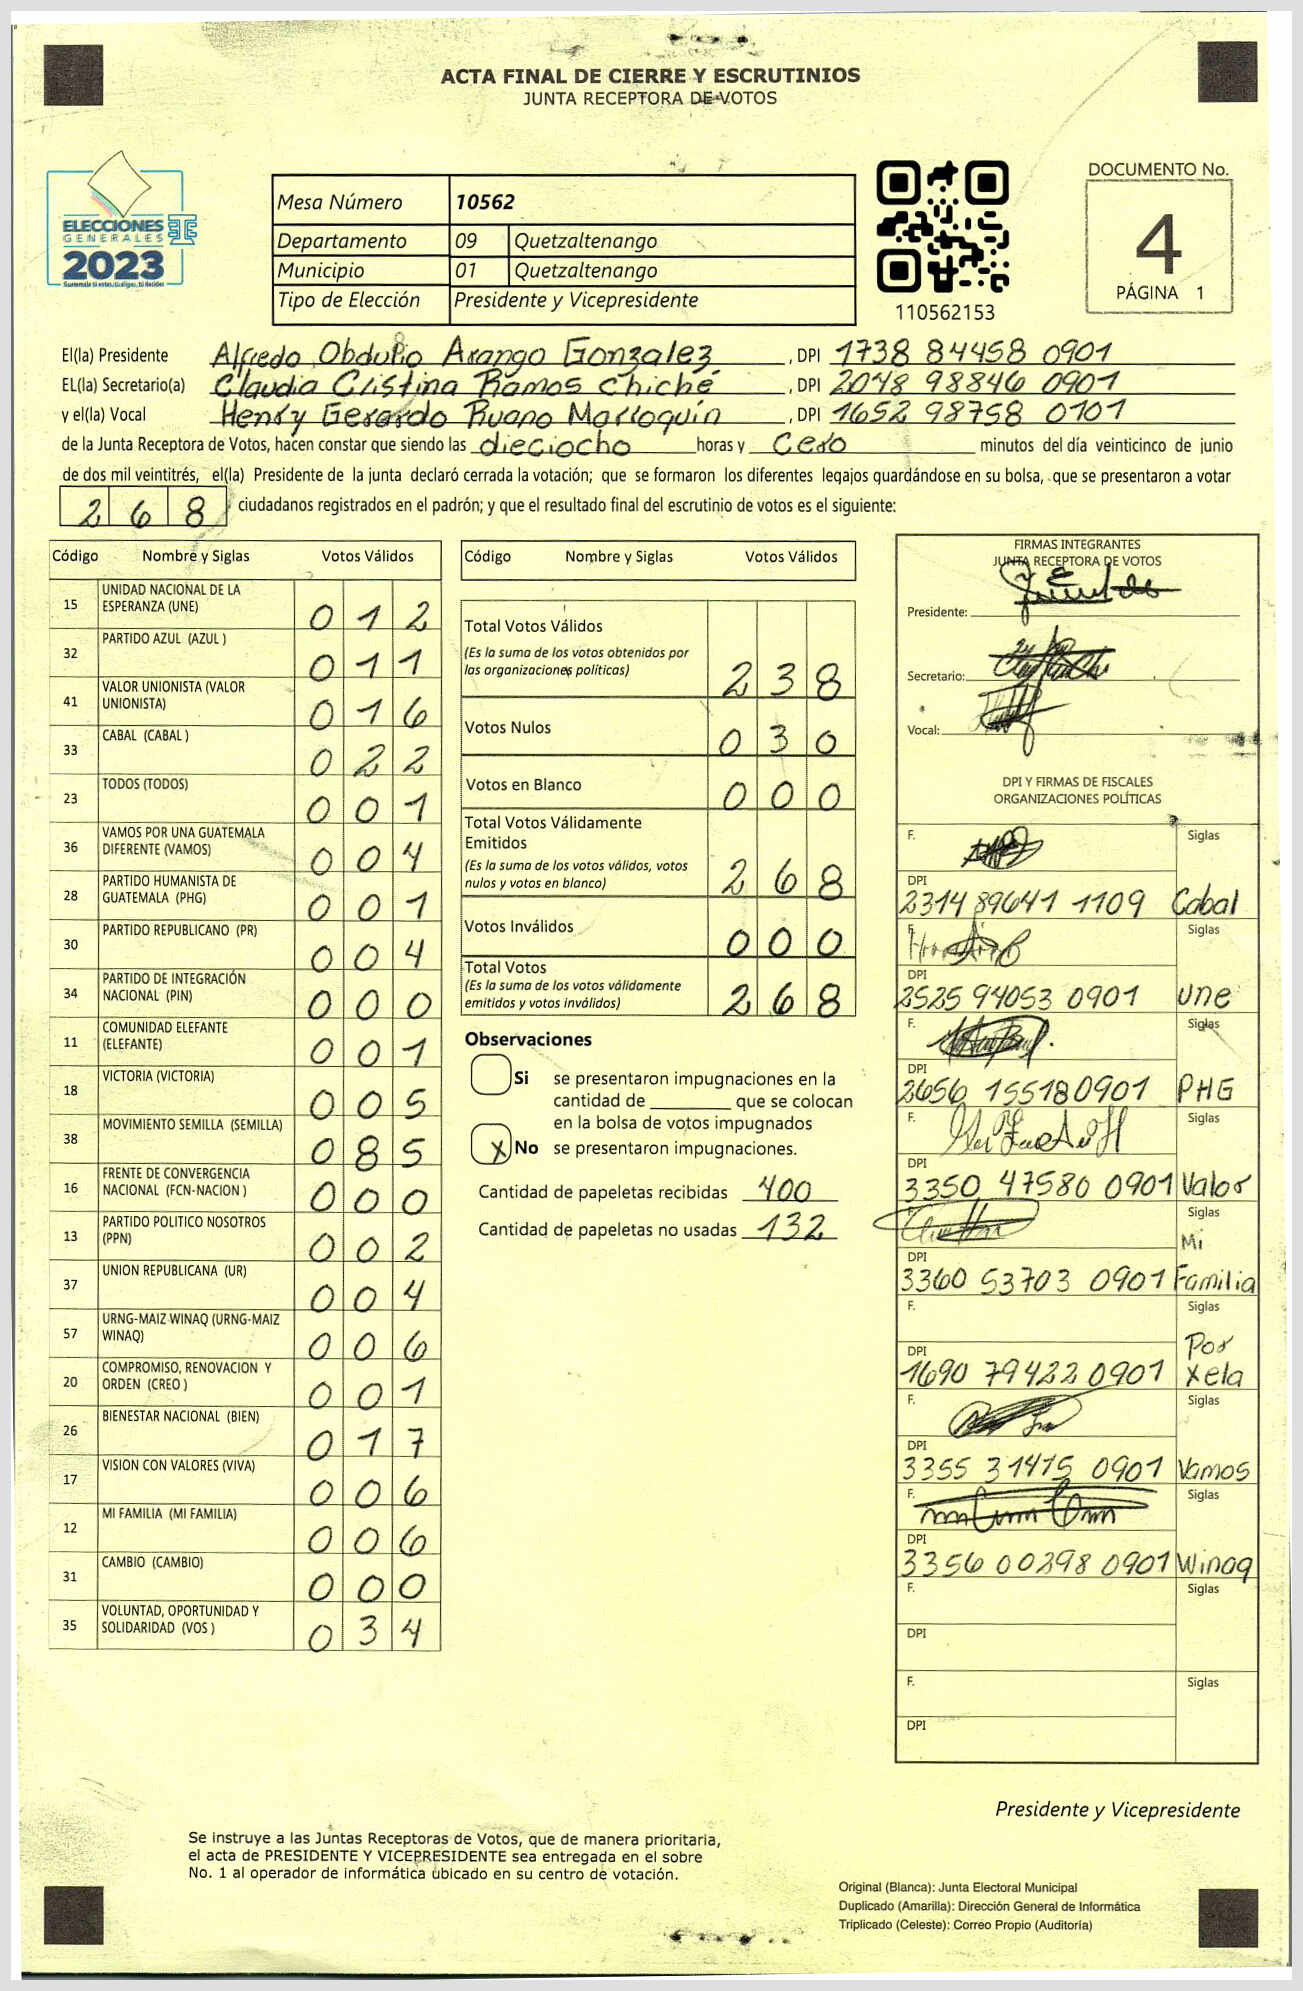 ACTA FINAL DE CIERRE Y ESCRUTINIOS
JUNTA RECEPTORA DE VOTOS
ELECCIONES
GENERALES
2023
Guatemala tú votas, tú eliges, tú decides
Mesa Número 10562
Departamento 09 Quetzaltenango
Municipio 01 Quetzaltenango
Tipo de Elección Presidente y Vicepresidente
110562153
DOCUMENTO No.
4
PÁGINA 1
El(la) Presidente Alfredo Obdulio Arango Gonzalez, DPI 1738 84458 0901
EL(la) Secretario(a) Claudia Cristina Ramos Chiché, DPI 2048 98846 0901
y el(la) Vocal Henry Gerardo Ruano Marroquín, DPI 1652 98758 0101
de la Junta Receptora de Votos, hacen constar que siendo las dieciocho horas y Cero minutos del día veinticinco de junio
de dos mil veintitrés, el(la) Presidente de la junta declaró cerrada la votación; que se formaron los diferentes legajos guardándose en su bolsa, que se presentaron a votar
268 ciudadanos registrados en el padrón; y que el resultado final del escrutinio de votos es el siguiente:
Código Nombre y Siglas Votos Válidos
15 UNIDAD NACIONAL DE LA
ESPERANZA (UNE) 012
32 PARTIDO AZUL (AZUL ) 011
41 VALOR UNIONISTA (VALOR
UNIONISTA) 016
33 CABAL (CABAL ) 022
23 TODOS (TODOS) 001
36 VAMOS POR UNA GUATEMALA
DIFERENTE (VAMOS) 004
28 PARTIDO HUMANISTA DE
GUATEMALA (PHG) 001
30 PARTIDO REPUBLICANO (PR) 004
34 PARTIDO DE INTEGRACIÓN
NACIONAL (PIN) 000
11 COMUNIDAD ELEFANTE
(ELEFANTE) 001
18 VICTORIA (VICTORIA) 005
38 MOVIMIENTO SEMILLA (SEMILLA) 085
16 FRENTE DE CONVERGENCIA
NACIONAL (FCN-NACION ) 000
13 PARTIDO POLITICO NOSOTROS
(PPN) 002
37 UNION REPUBLICANA (UR) 004
57 URNG-MAIZ WINAQ (URNG-MAIZ
WINAQ) 006
20 COMPROMISO, RENOVACION Y
ORDEN (CREO ) 001
26 BIENESTAR NACIONAL (BIEN) 017
17 VISION CON VALORES (VIVA) 006
12 MI FAMILIA (MI FAMILIA) 006
31 CAMBIO (CAMBIO) 000
35 VOLUNTAD, OPORTUNIDAD Y
SOLIDARIDAD (VOS ) 034
Código Nombre y Siglas Votos Válidos
Total Votos Válidos
(Es la suma de los votos obtenidos por
las organizaciones políticas) 238
Votos Nulos 030
Votos en Blanco 000
Total Votos Válidamente
Emitidos
(Es la suma de los votos válidos, votos
nulos y votos en blanco) 268
Votos Inválidos 000
Total Votos
(Es la suma de los votos válidamente
emitidos y votos inválidos) 268
Observaciones
Si se presentaron impugnaciones en la
cantidad de ________ que se colocan
en la bolsa de votos impugnados
X No se presentaron impugnaciones.
Cantidad de papeletas recibidas 400
Cantidad de papeletas no usadas 132
FIRMAS INTEGRANTES
JUNTA RECEPTORA DE VOTOS
Presidente:
Secretario:
Vocal:
DPI Y FIRMAS DE FISCALES
ORGANIZACIONES POLÍTICAS
F. Siglas
DPI
2314 89641 1109 Cabal
F. Siglas
DPI
2525 94053 0901 une
F. Siglas
DPI
2656 15518 0901 PHG
F. Siglas
DPI
3350 47580 0901 Valor
F. Siglas
Mi
DPI
3360 53703 0901 Familia
F. Siglas
Por
DPI
1690 79422 0901 Xela
F. Siglas
DPI
3355 31415 0901 Vamos
F. Siglas
DPI
3356 00298 0901 Winaq
F. Siglas
DPI
F. Siglas
DPI
Presidente y Vicepresidente
Se instruye a las Juntas Receptoras de Votos, que de manera prioritaria,
el acta de PRESIDENTE Y VICEPRESIDENTE sea entregada en el sobre
No. 1 al operador de informática ubicado en su centro de votación.
Original (Blanca): Junta Electoral Municipal
Duplicado (Amarilla): Dirección General de Informática
Triplicado (Celeste): Correo Propio (Auditoría)